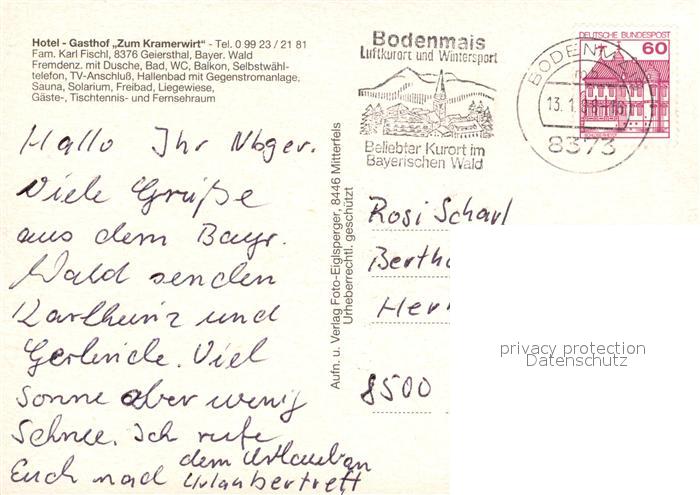 Hotel - Gasthof „Zum Kramerwirt" - Tel. 0 99 23 / 21 81
Fam. Karl Fischl, 8376 Geiersthal, Bayer. Wald
Fremdenz. mit Dusche, Bad, WC, Balkon, Selbstwähl-
telefon, TV-Anschluß, Hallenbad mit Gegenstromanlage,
Sauna, Solarium, Freibad, Liegewiese,
Gäste-, Tischtennis- und Fernsehraum
Hallo Ihr Nbger.
Viele Grüße
aus dem Bayr.
Wald senden
Karlheinz und
Gerlinde. Viel
Sonne aber wenig
Schnee. Ich rufe
Euch nach dem Urlaub an
Urlaubertreff
Aufn. u. Verlag Foto-Eiglsperger, 8446 Mitterfels
Urheberrechtl. geschützt
Bodenmais
Luftkurort und Wintersport
Beliebter Kurort im
Bayerischen Wald
BODENMAIS
13.1.
8373
DEUTSCHE BUNDESPOST
60
Rosi Scharl
Berth
Her
8500
privacy protection
Datenschutz